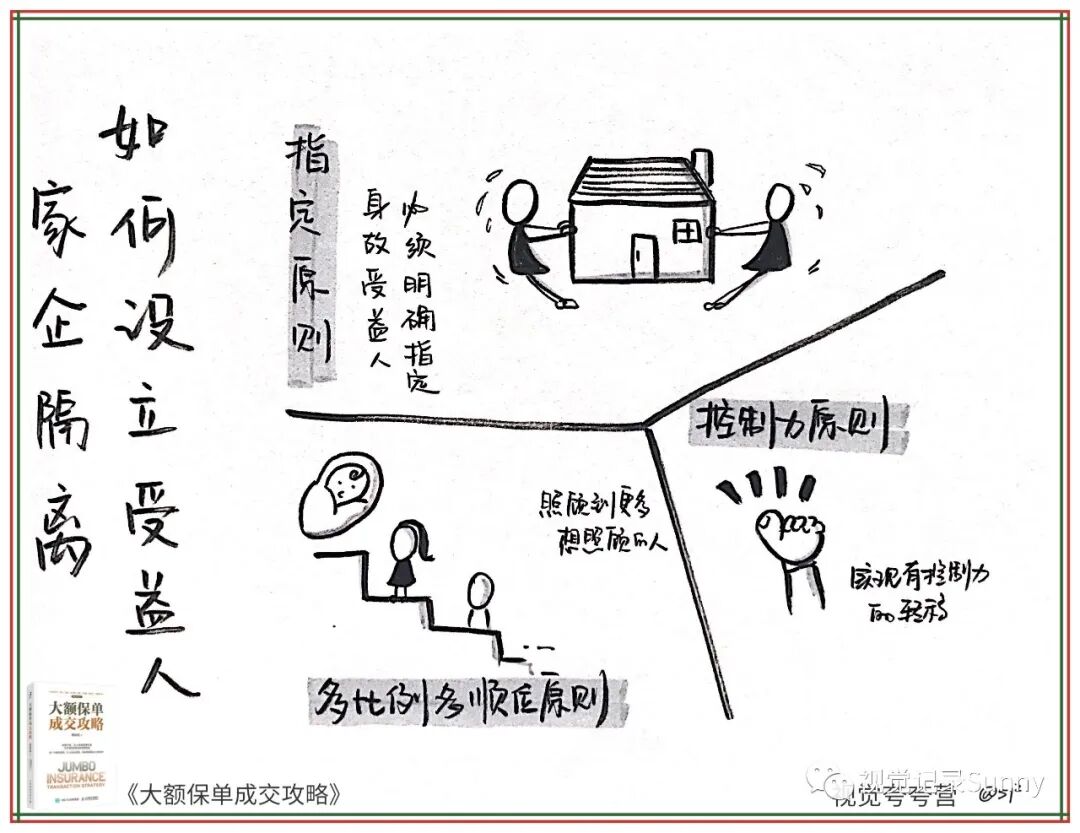 如何设立受益人
家企隔离
指定原则
必须明确指定
身故受益人
控制力原则
实现有控制力
的转移
照顾到更多
想照顾的人
多比例多顺位原则
大额保单
成交攻略
JUMBO
INSURANCE
TRANSACTION STRATEGY
《大额保单成交攻略》
视觉记录Sunny